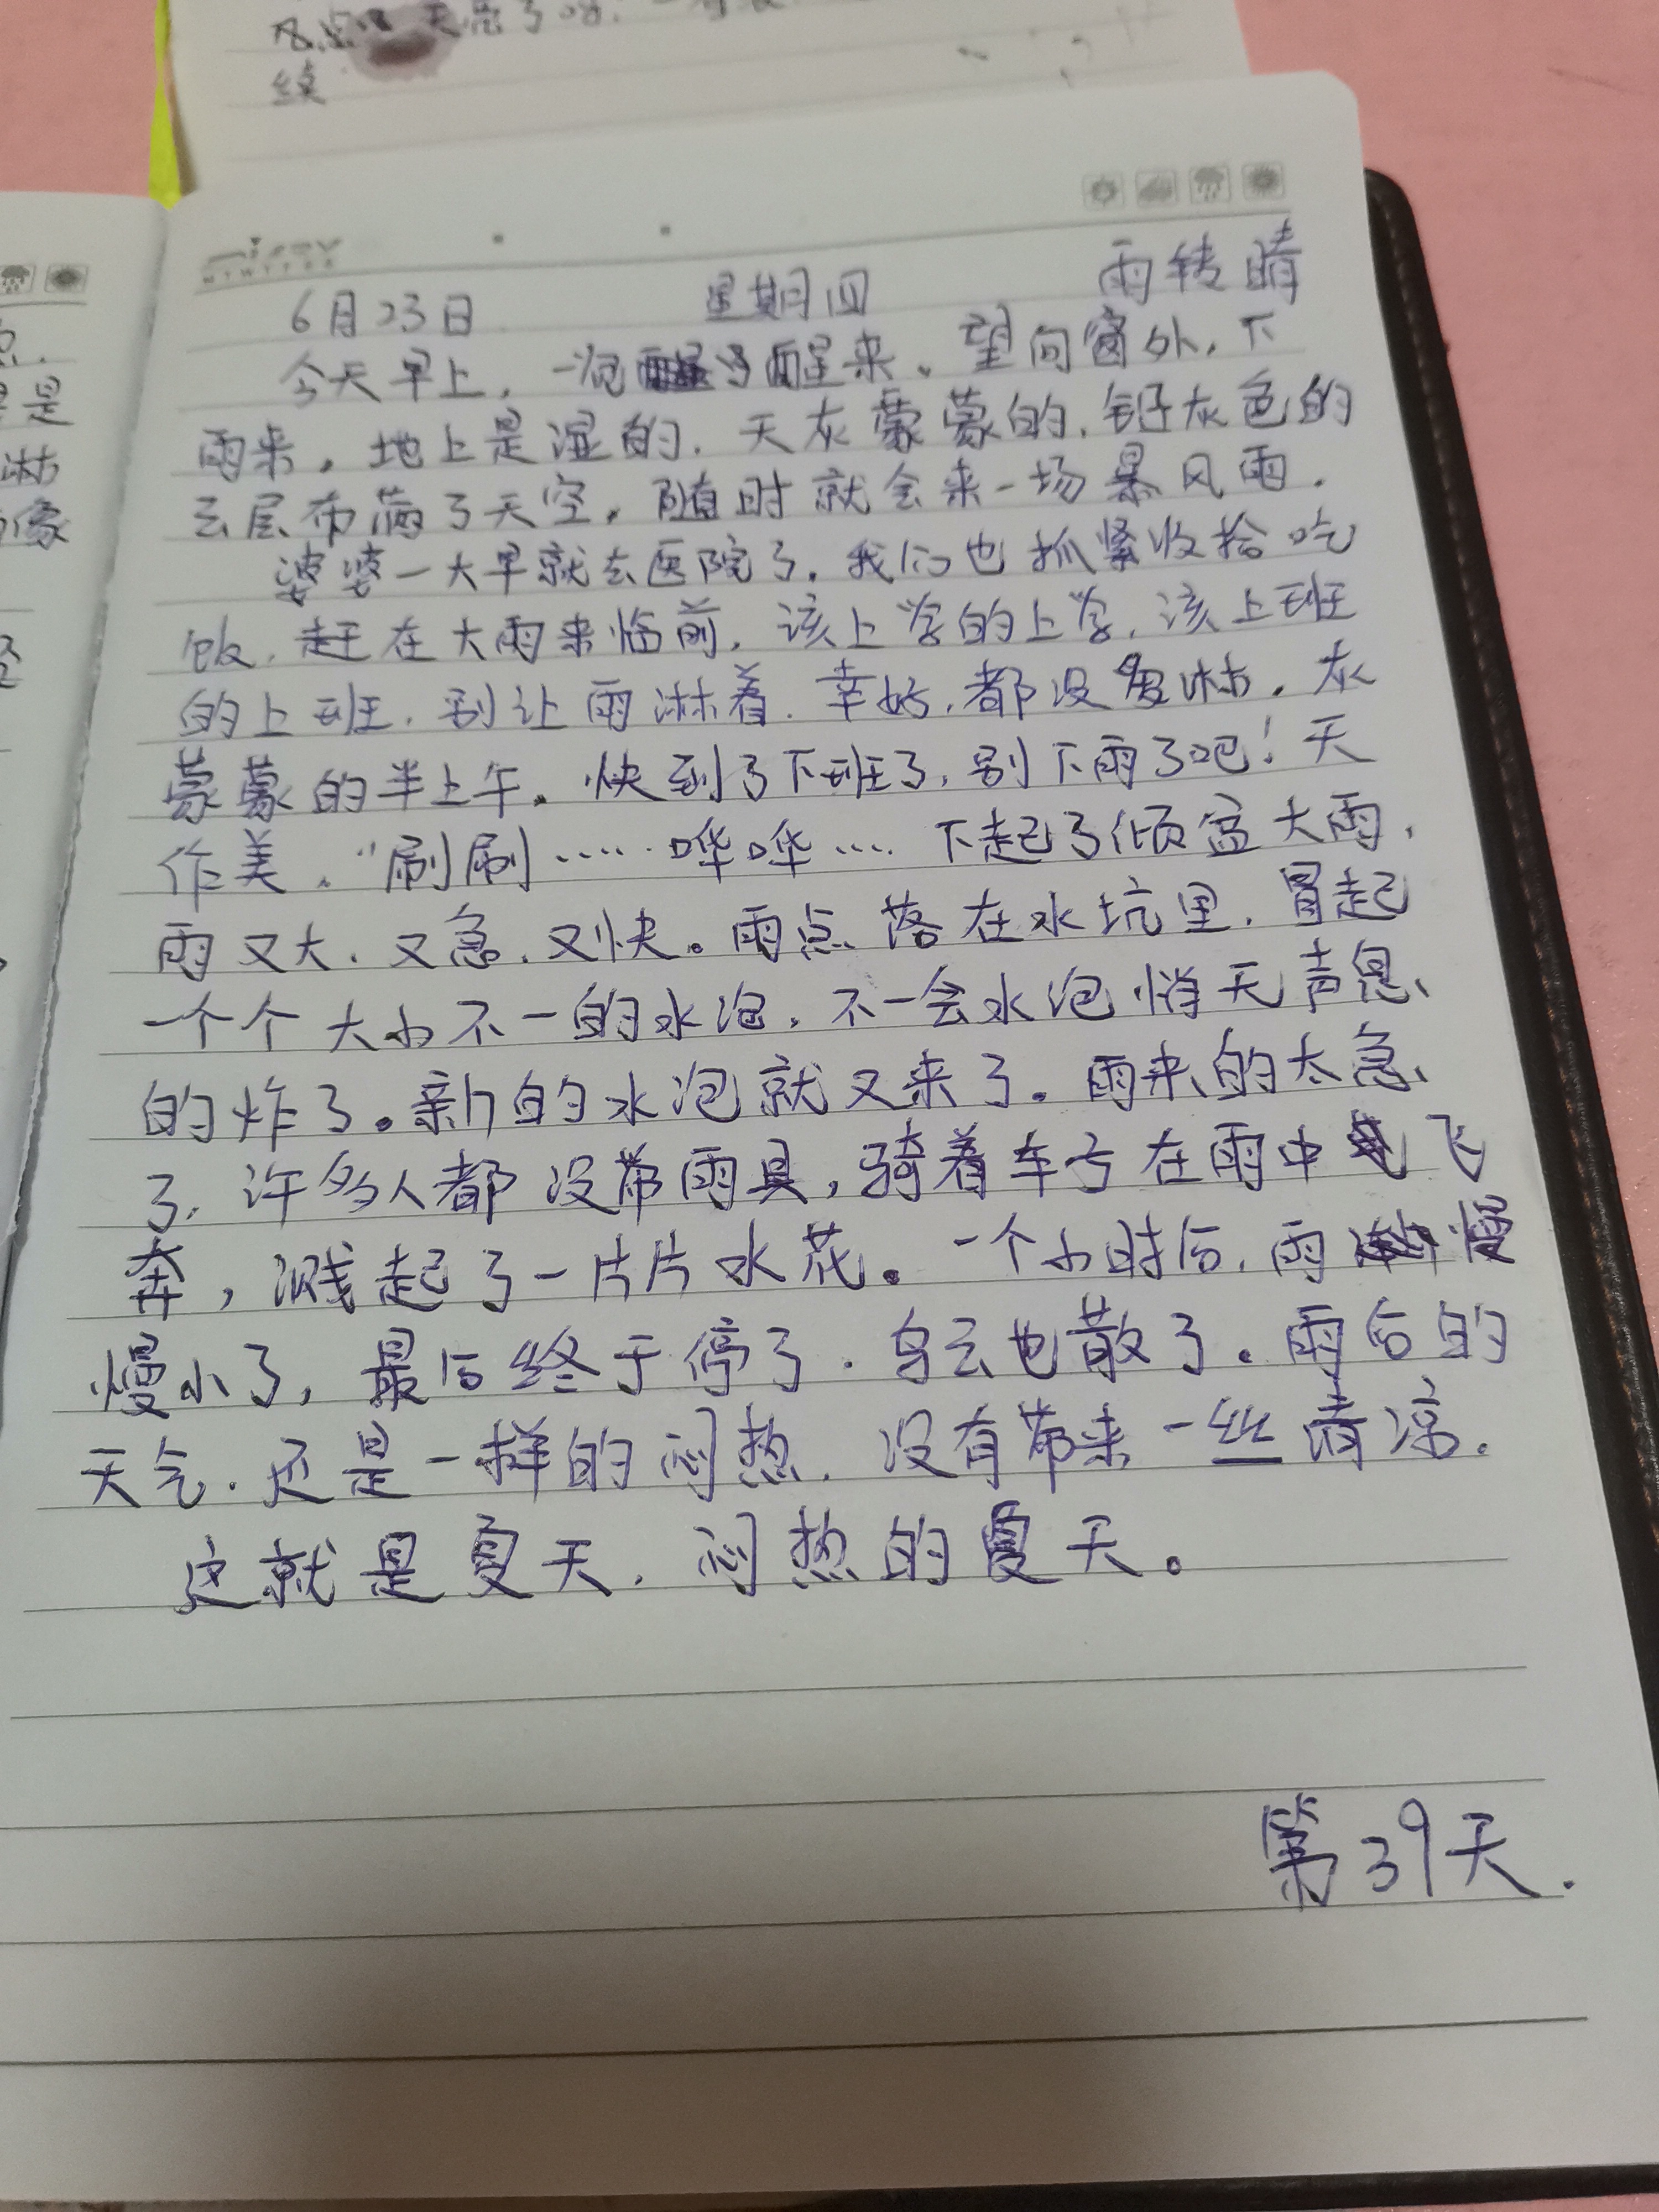 线
6月23日 星期四 雨转晴
今天早上，一觉醒来。望向窗外，下
雨来，地上是湿的，天灰蒙蒙的，铅灰色的
云层布满了天空，随时就会来一场暴风雨。
婆婆一大早就去医院了。我们也抓紧收拾吃
饭，赶在大雨来临前，该上学的上学，该上班
的上班，别让雨淋着。幸好，都没淋。灰
蒙蒙的半上午。快到了下班了，别下雨了吧！天
作美。“刷刷……哗哗…下起了倾盆大雨，
雨又大，又急，又快。雨点落在水坑里，冒起
一个个大小不一的水泡，不一会水泡悄无声息
的炸了。新的水泡就又来了。雨来的太急
了，许多人都没带雨具，骑着车子在雨中飞
奔，溅起了一片片水花。一个小时后，雨慢
慢小了，最后终于停了，乌云也散了。雨后的
天气，还是一样的闷热，没有带来一丝清凉。
这就是夏天，闷热的夏天。
第39天.
是
淋
像